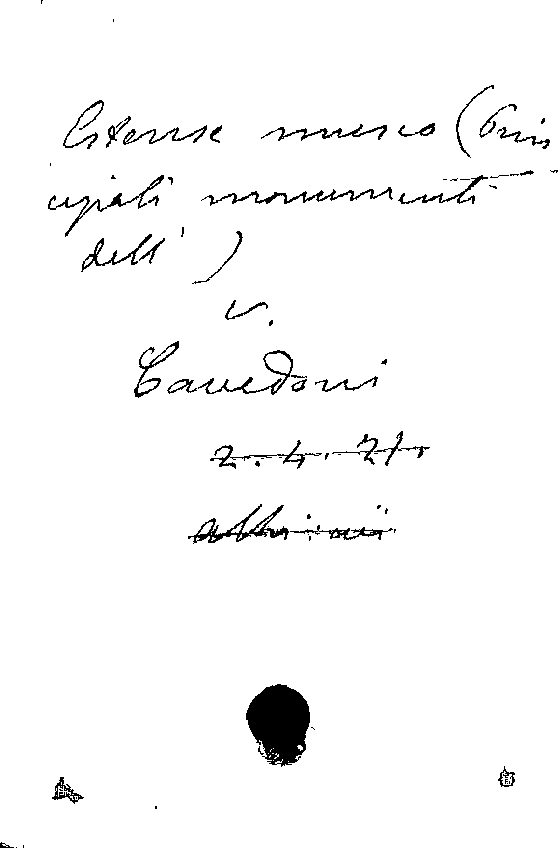 Estense museo (Prin
cipali monumenti
dell')
v.
Cavedoni
2. 4. 21.